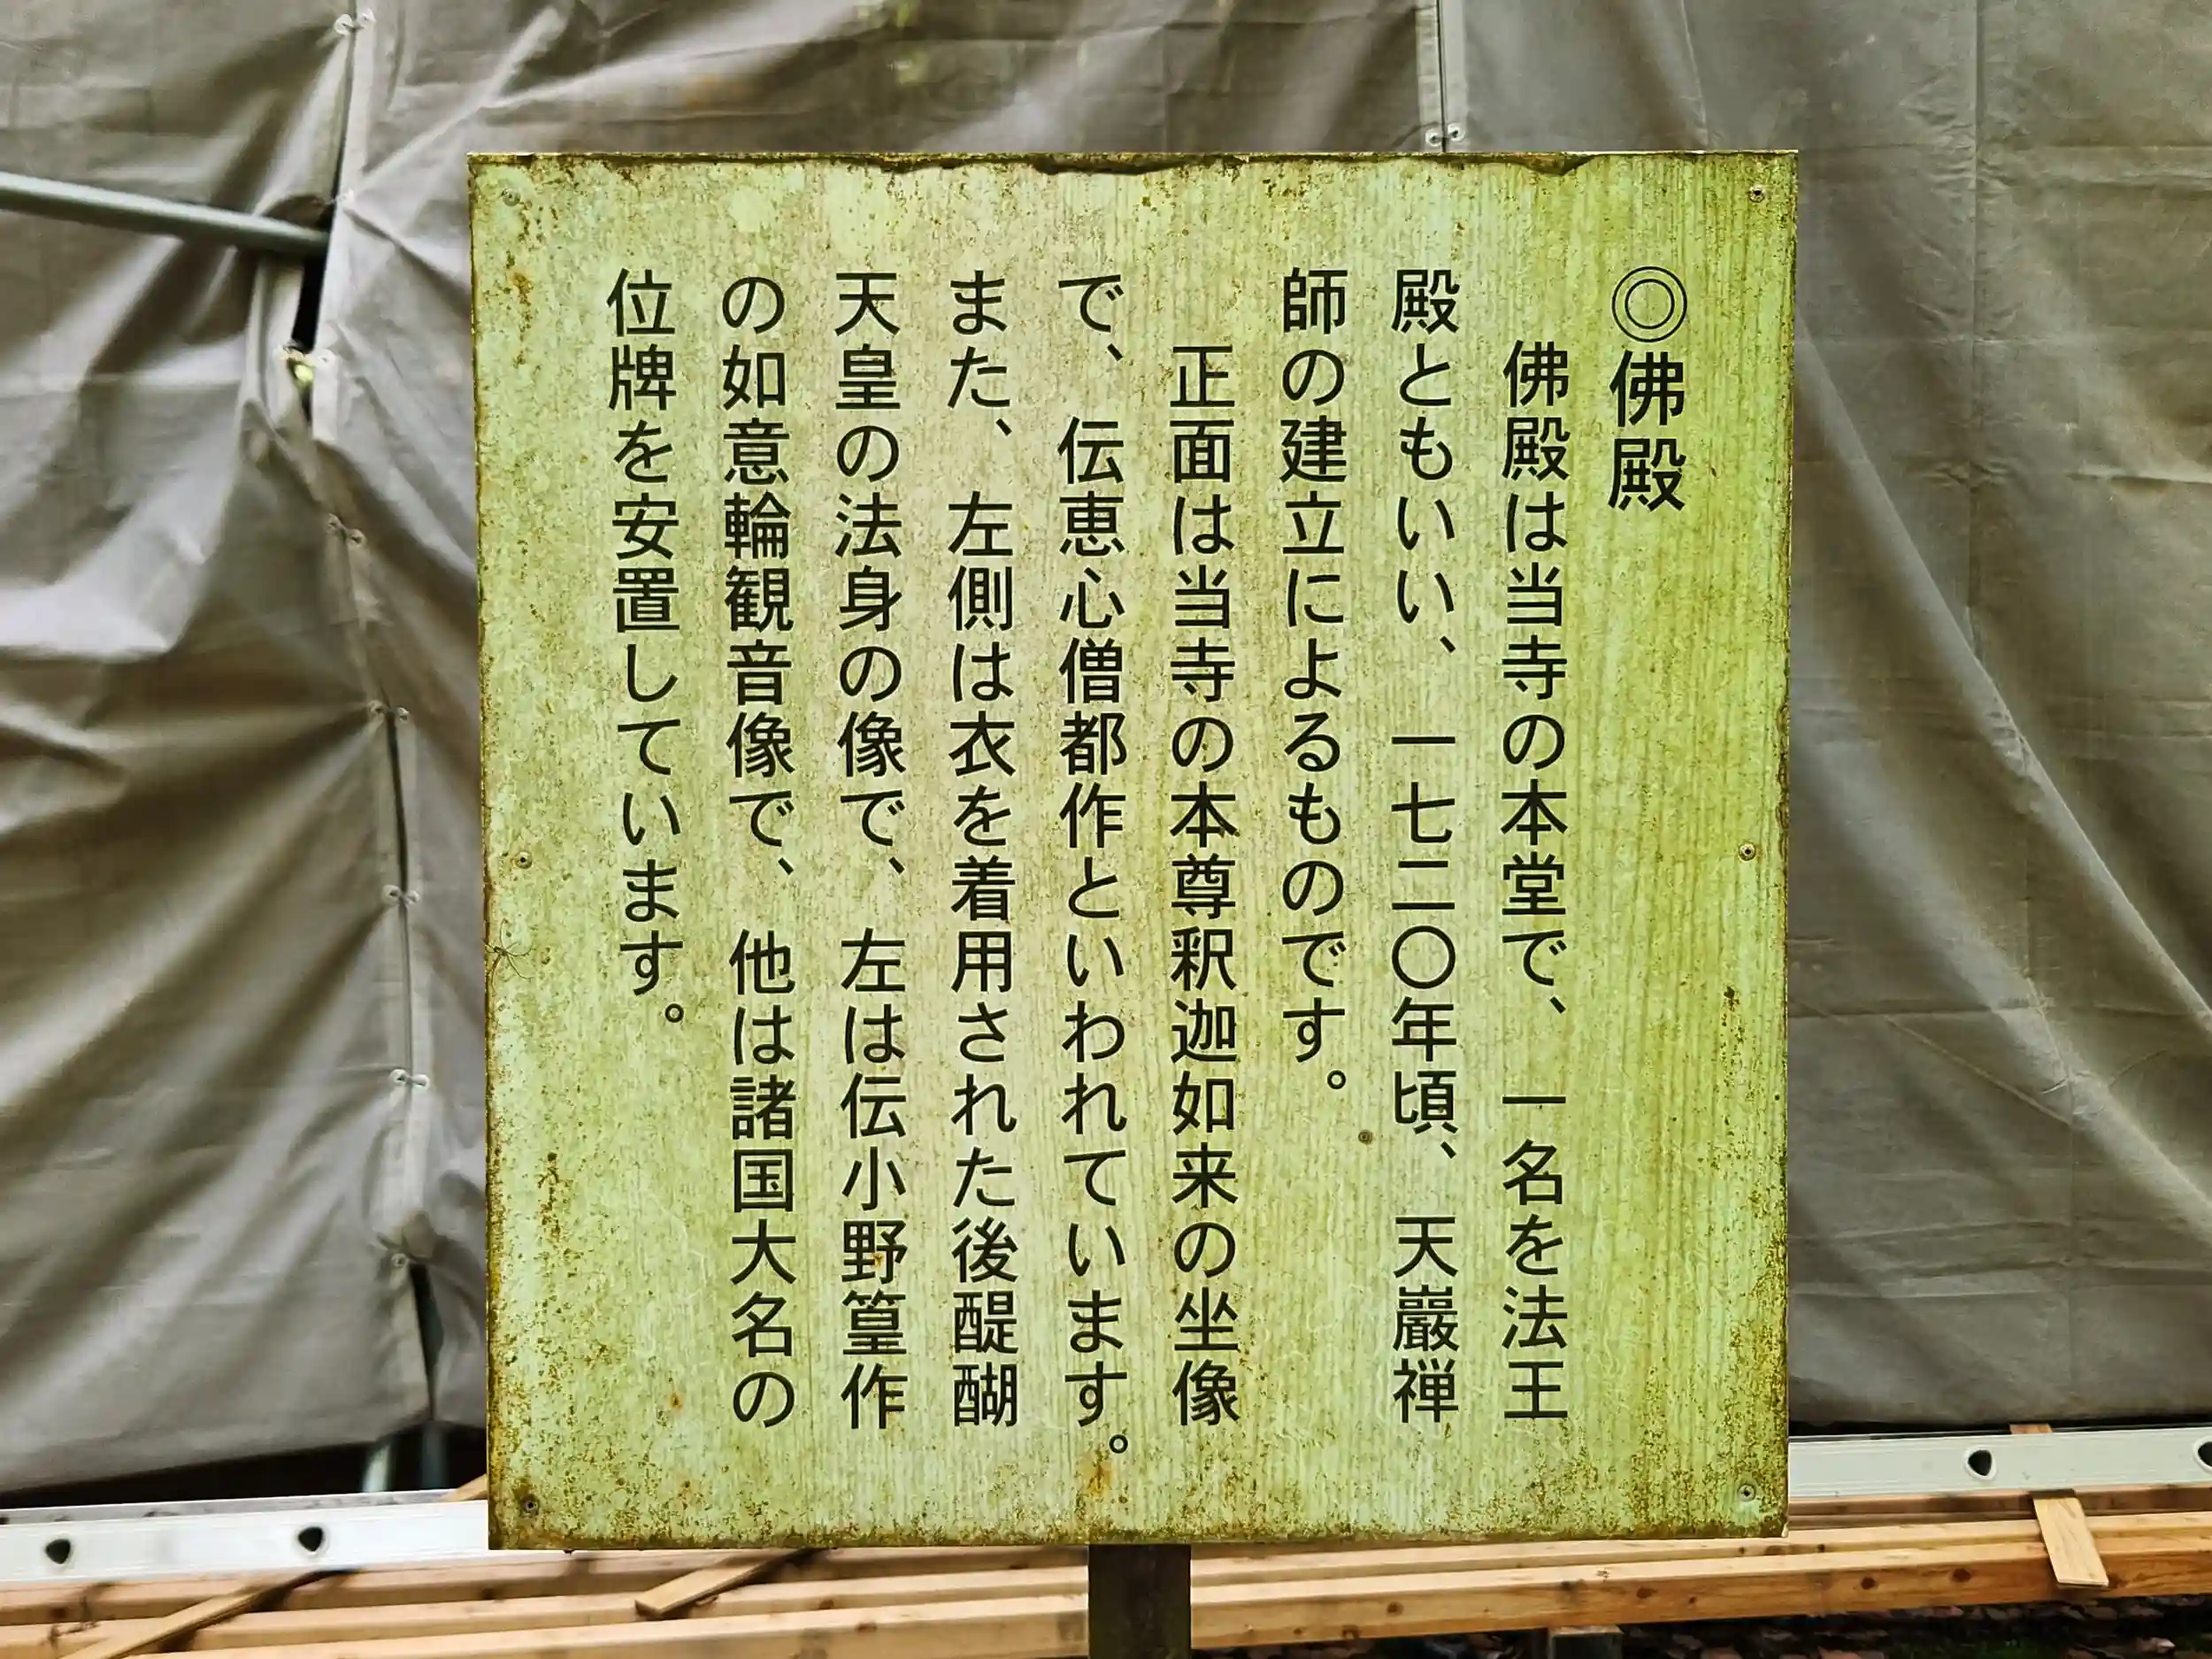 ◎佛殿
佛殿は当寺の本堂で、一名を法王
殿ともいい、一七二〇年頃、天巖禅
師の建立によるものです。
正面は当寺の本尊釈迦如来の坐像
で、伝恵心僧都作といわれています。
また、左側は衣を着用された後醍醐
天皇の法身の像で、左は伝小野篁作
の如意輪観音像で、他は諸国大名の
位牌を安置しています。